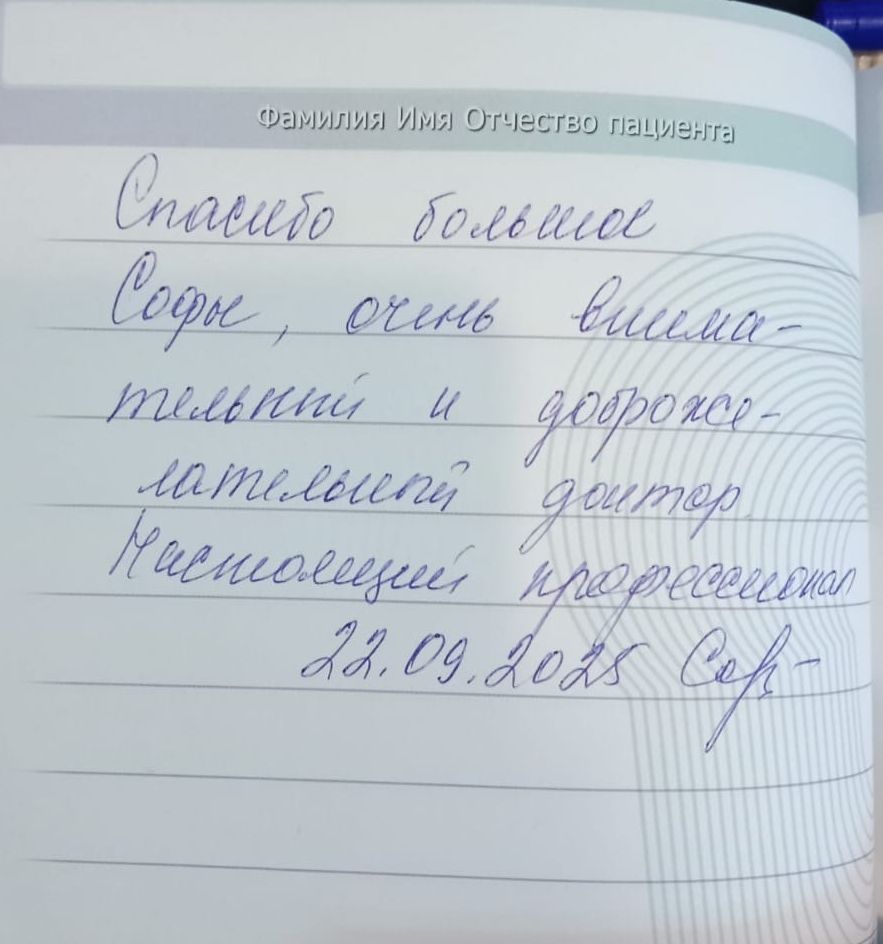 Фамилия Имя Отчество пациента
Спасибо большое
Софье, очень внима-
тельный и доброже-
лательный доктор
Настоящий профессионал
22.09.2025